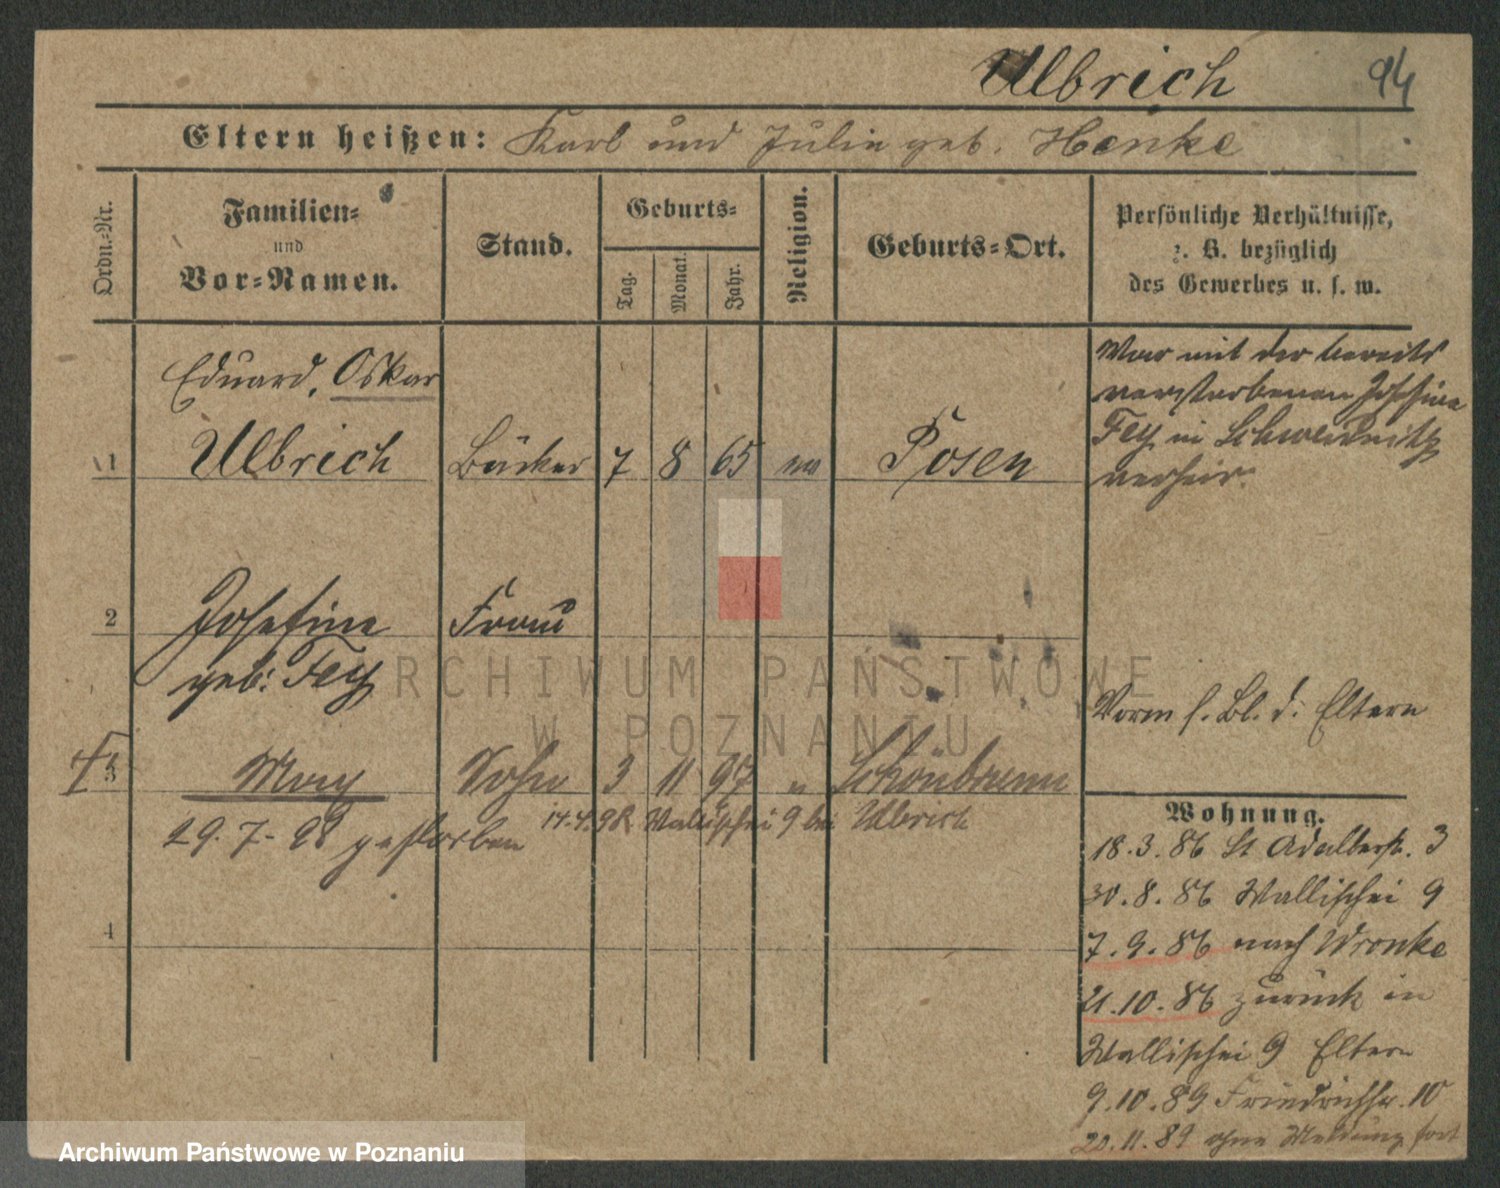 Ulbrich 94
Eltern heißen: Karl und Julie geb. Henke
Ordn.-Nr.
Familien-
und
Vor-Namen.
Stand.
Geburts-
Tag.
Monat.
Jahr.
Religion.
Geburts-Ort.
Persönliche Verhältnisse,
z. B. bezüglich
des Gewerbes u. s. w.
Eduard, Oskar
1 Ulbrich Bäcker 7 8 65 Posen
War mit der bereits
verstorbenen Josefine
Fey in Schweidnitz
verheir.
2 Josefine Frau
geb. Fey
Vorm s. Bl. d. Eltern
3 Max Sohn 3 11 97 Schönbrunn
14.4.98 Wallischei 9 bei Ulbrich
29.7-98 gestorben
4
Wohnung.
18.3.86 St Adalbertstr. 3
30.8.86 Wallischei 9
7.9.86 nach Wronke
21.10.86 zurück in
Wallischei 9 Eltern
9.10.89 Friedrichstr. 10
20.11.89 ohne Meldung fort
ARCHIWUM PAŃSTWOWE
W POZNANIU
Archiwum Państwowe w Poznaniu